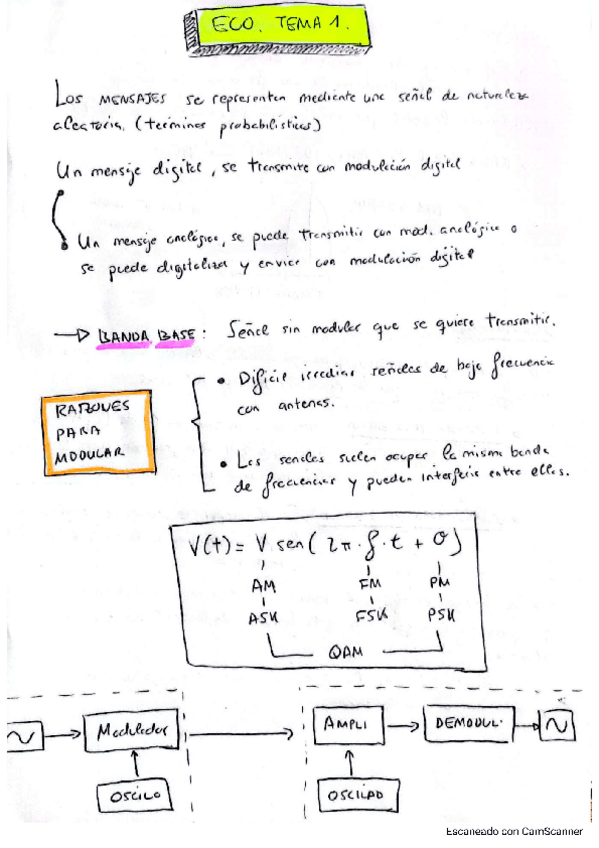 ECO. TEMA 1.
LOS MENSAJES se representan mediante una señal de naturaleza
aleatoria. (terminos probabilísticos)
Un mensaje digital, se transmite con modulación digital
Un mensaje analógico, se puede transmitir con mod. analógica o
se puede digitalizar y enviar con modulación digital
→ BANDA BASE: Señal sin modular que se quiere transmitir.
RAZONES
PARA
MODULAR
• Dificil irradiar señales de baja frecuencia
con antenas.
• Las senales suelen ocupar la misma banda
de frecuencias y pueden interferir entre ellas.
V(t) = V sen( 2π·f·t + θ)
AM FM PM
ASK FSK PSK
QAM
Modulador
AMPLI
DEMODUL.
OSCILO
OSCILAD
Escaneado con CamScanner